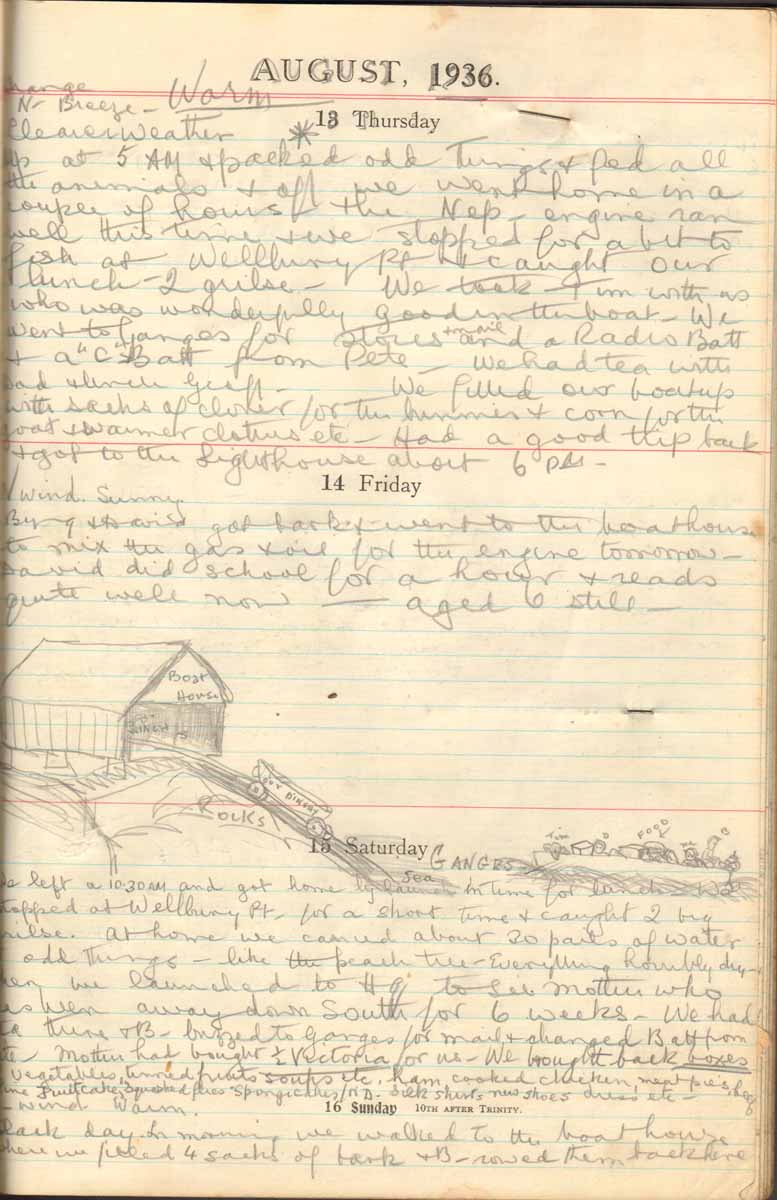 AUGUST, 1936.
N Breeze - Warm
13 Thursday
Clearer weather
up at 5 AM & packed odd things & fed all
the animals & off we went home in a
couple of hours & the Nep - engine ran
well this time & we stopped for a bit to
fish at Wellbury Pt & caught our
lunch - 2 grilse - We took Tim with us
who was wonderfully good in the boat - We
went to Ganges for stores + mail and a Radio Batt
+ a "C" Batt from Pete - we had tea with
We filled our boat up
with sacks of clover for the & corn for the
goat & warmer clothes etc - Had a good trip back
& got to the Lighthouse about 6 PM -
14 Friday
wind. Sunny.
By & David got bark & went to the boathouse
to mix the gas & oil for the engine tomorrow -
David did school for a hour & reads
quite well now - aged 6 still -
Boat
House
OUR DINGHY
ROCKS
15 Saturday
GANGES
Tim
D
FOOD
B
Sea
We left a 10:30 AM and got home by launch in time for lunch - We
stopped at Wellbury Pt - for a short time & caught 2 big
grilse. At home we carried about 30 pails of water
& odd things - like the peach tree - Everything horribly dry -
then we launched to Hq to see Mother who
has been away down South for 6 weeks - We had
tea there & B - buzzed to Ganges for mail & changed Batt from
Pete - Mother had bought ½ Victoria for us - We brought back boxes
vegetables, tinned fruits soups etc, ham, cooked chicken, meat pies,
fruitcake, squashed flies spongecakes / N.D. silk shirts new shoes dress etc -
16 Sunday 10TH AFTER TRINITY.
- wind Warm.
Slack day. In morning we walked to the boat house
where we filled 4 sacks of bark & B - rowed them back here